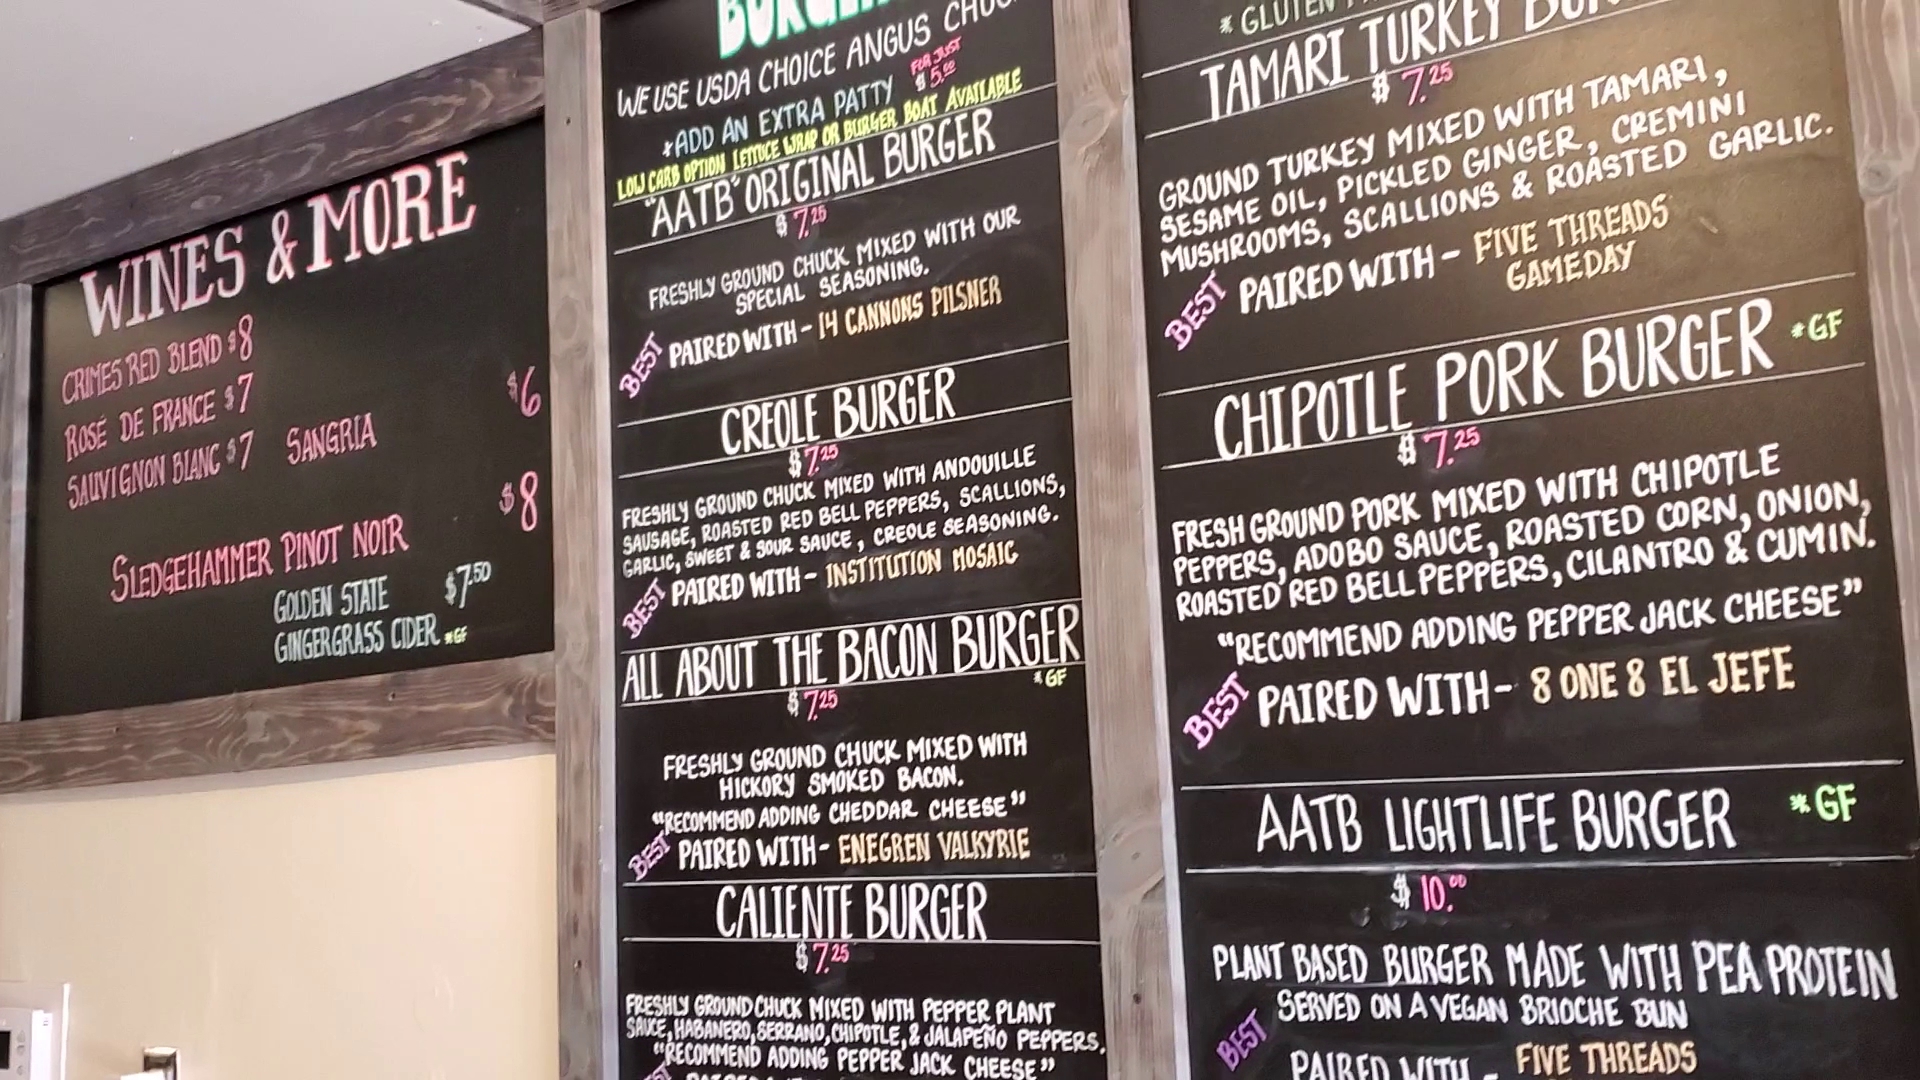 WINES & MORE
CRIMES RED BLEND $8
ROSÉ DE FRANCE $7
SAUVIGNON BLANC $7 SANGRIA $6
SLEDGEHAMMER PINOT NOIR $8
GOLDEN STATE $7.50
GINGERGRASS CIDER *GF
WE USE USDA CHOICE ANGUS
*ADD AN EXTRA PATTY FOR JUST $5.00
LOW CARB OPTION LETTUCE WRAP OR BURGER BOAT AVAILABLE
"AATB" ORIGINAL BURGER
$7.25
FRESHLY GROUND CHUCK MIXED WITH OUR
SPECIAL SEASONING.
BEST PAIRED WITH - 14 CANNONS PILSNER
CREOLE BURGER
$7.25
FRESHLY GROUND CHUCK MIXED WITH ANDOUILLE
SAUSAGE, ROASTED RED BELL PEPPERS, SCALLIONS,
GARLIC, SWEET & SOUR SAUCE, CREOLE SEASONING.
BEST PAIRED WITH - INSTITUTION MOSAIC
ALL ABOUT THE BACON BURGER
$7.25 *GF
FRESHLY GROUND CHUCK MIXED WITH
HICKORY SMOKED BACON.
"RECOMMEND ADDING CHEDDAR CHEESE"
BEST PAIRED WITH - ENEGREN VALKYRIE
CALIENTE BURGER
$7.25
FRESHLY GROUND CHUCK MIXED WITH PEPPER PLANT
SAUCE, HABANERO, SERRANO, CHIPOTLE, & JALAPEÑO PEPPERS.
"RECOMMEND ADDING PEPPER JACK CHEESE"
TAMARI TURKEY
$7.25
GROUND TURKEY MIXED WITH TAMARI,
SESAME OIL, PICKLED GINGER, CREMINI
MUSHROOMS, SCALLIONS & ROASTED GARLIC.
BEST PAIRED WITH - FIVE THREADS
GAMEDAY
CHIPOTLE PORK BURGER *GF
$7.25
FRESH GROUND PORK MIXED WITH CHIPOTLE
PEPPERS, ADOBO SAUCE, ROASTED CORN, ONION,
ROASTED RED BELL PEPPERS, CILANTRO & CUMIN.
"RECOMMEND ADDING PEPPER JACK CHEESE"
BEST PAIRED WITH - 8 ONE 8 EL JEFE
AATB LIGHTLIFE BURGER *GF
$10.00
PLANT BASED BURGER MADE WITH PEA PROTEIN
SERVED ON A VEGAN BRIOCHE BUN
BEST PAIRED WITH - FIVE THREADS